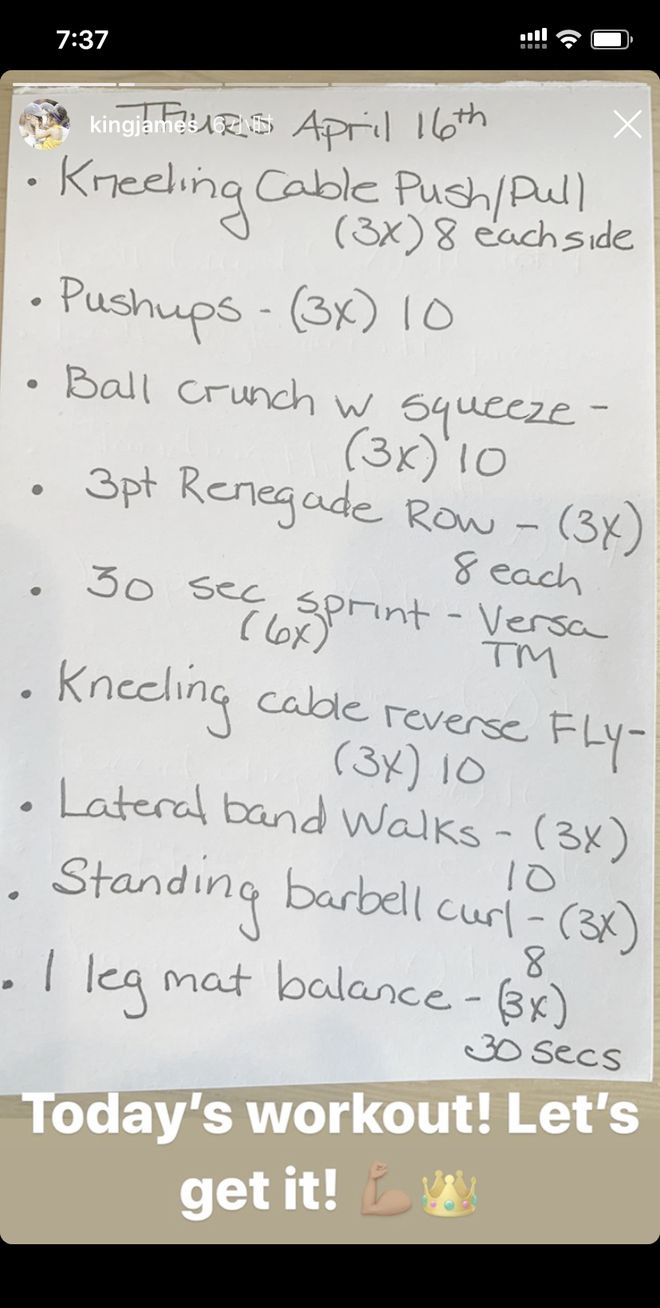 7:37
Thurs April 16th
kingjames 6小时
• Kneeling Cable Push/Pull
(3x) 8 each side
• Pushups - (3x) 10
• Ball crunch w squeeze -
(3x) 10
• 3pt Renegade Row - (3x)
8 each
• 30 sec sprint - Versa
(6x) TM
• Kneeling cable reverse FLy-
(3x) 10
• Lateral band Walks - (3x)
10
• Standing barbell curl - (3x)
8
• 1 leg mat balance - (3x)
30 secs
Today's workout! Let's
get it! 💪🏽👑